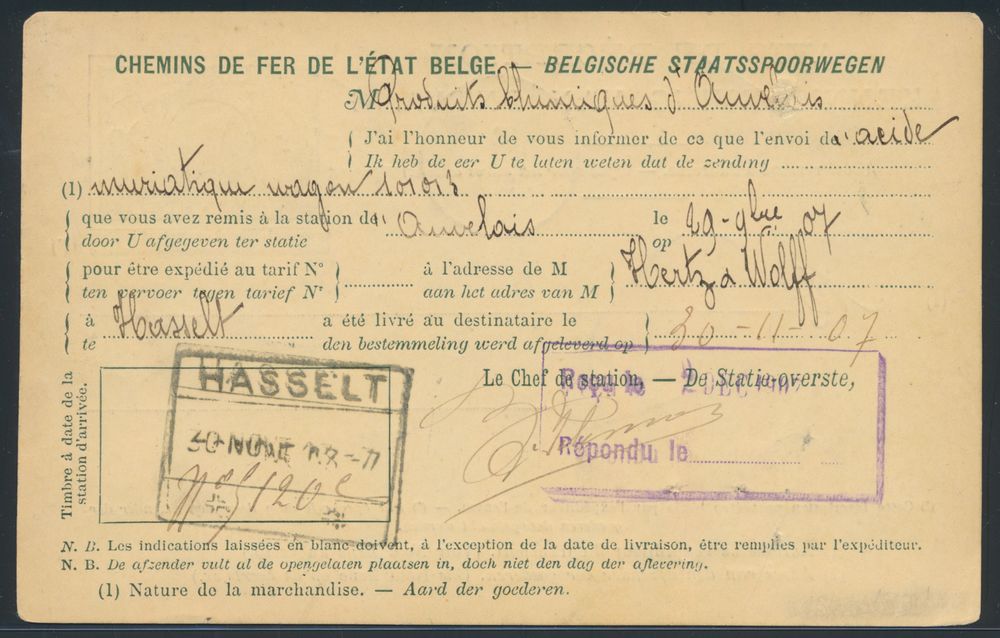 CHEMINS DE FER DE L'ÉTAT BELGE — BELGISCHE STAATSSPOORWEGEN
M Produits Chimiques d'Auvelais
J'ai l'honneur de vous informer de ce que l'envoi de l'acide
Ik heb de eer U te laten weten dat de zending
(1) muriatique wagon 101013
que vous avez remis à la station de Auvelais le 29-9bre 07
door U afgegeven ter statie op
pour être expédié au tarif N° à l'adresse de M Hertz & Wolff
ten vervoer tegen tarief Nr aan het adres van M
à Hasselt a été livré au destinataire le 30-11-07
te den bestemmeling werd afgeleverd op
Timbre à date de la station d'arrivée.
HASSELT
30 NOVE
Le Chef de station, — De Statie-overste,
Reçu le 2 DEC
Répondu le
N. B. Les indications laissées en blanc doivent, à l'exception de la date de livraison, être remplies par l'expéditeur.
N. B. De afzender vult al de opengelaten plaatsen in, doch niet den dag der aflevering.
(1) Nature de la marchandise. — Aard der goederen.